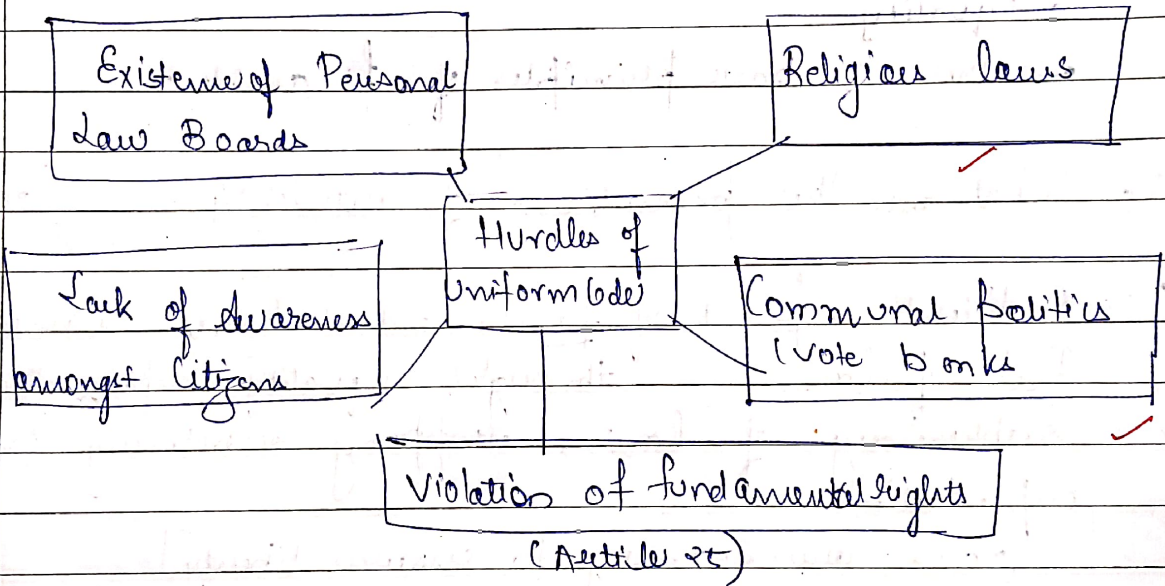 Existence of Personal
Law Boards
Religious laws
Hurdles of
Uniform Code
Lack of Awareness
amongst Citizens
Communal Politics
(vote banks
Violation of fundamental rights
(Article 25)